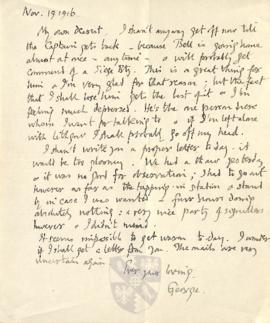 Nov. 19 1916.
My own Dearest, I shan't anyway get off now till
the Captain gets back — because Bell is going home
almost at once — any time — & will probably get
command of a Siege Bty. This is a great thing for
him & I'm very glad for that reason; but the fact
that I shall lose him gets the best of it & I'm
feeling much depressed. He's the one person here
whom I want for talking to & if I'm left alone
with Lithgow I shall probably go off my head.
I shan't write you a proper letter to-day — it
would be too gloomy. We had a thaw yesterday
& it was no good for observation; I had to go out
however as far as the tapping-in station & stand
by in case I was wanted — four hours doing
absolutely nothing: a very nice party of signallers
however & I didn't mind.
It seems impossible to get warm to-day. I wonder
if I shall get a letter from you. The mails are very
uncertain again
Ever your loving
George.